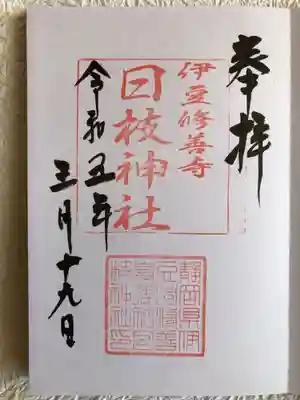 奉拝
伊豆修善寺
日枝神社
令和五年
三月十九日